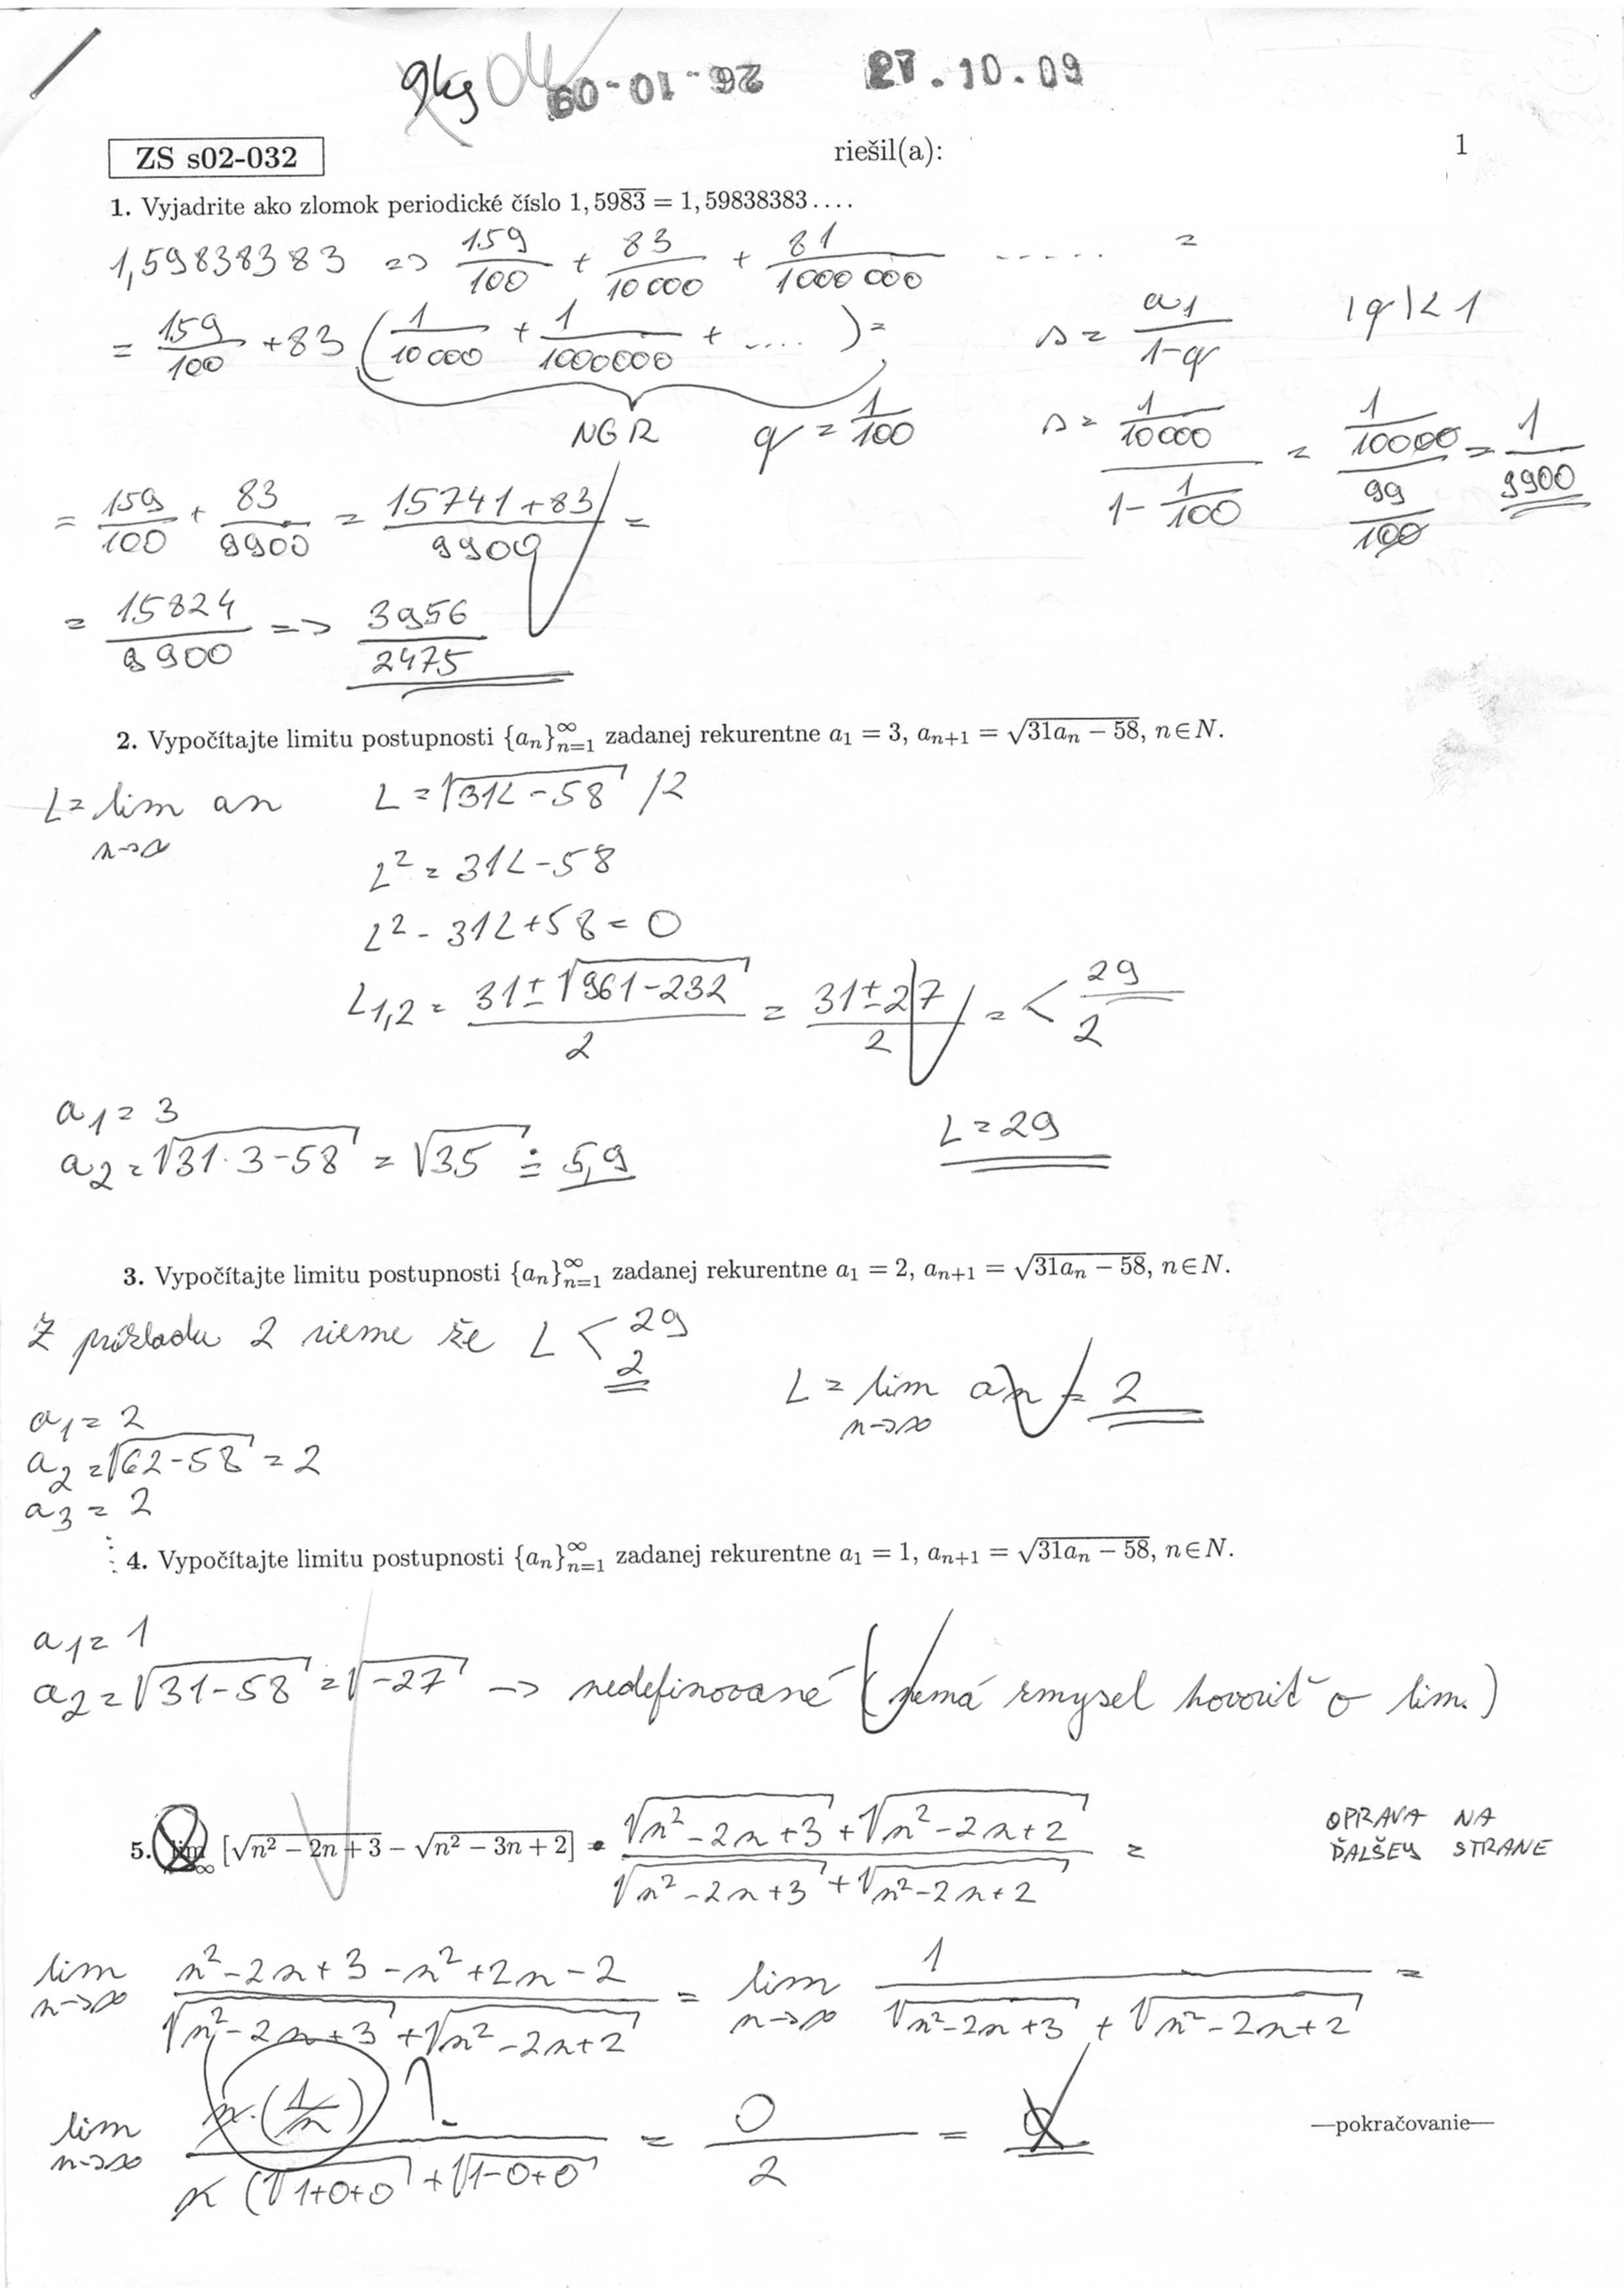 9kg
26-10-09 27.10.09
ZS s02-032 riešil(a): 1
1. Vyjadrite ako zlomok periodické číslo 1,59\overline{83} = 1,59838383....
1,59838383 => 159/100 + 83/10000 + 81/1000000 ..... =
= 159/100 + 83 (1/10000 + 1/1000000 + ....) = s = a1/(1-q) |q|<1
NGR q = 1/100 s = (1/10000)/(1-1/100) = (1/10000)/(99/100) = 1/9900
= 159/100 + 83/9900 = (15741+83)/9900 =
= 15824/9900 => 3956/2475
2. Vypočítajte limitu postupnosti {aₙ}∞ₙ₌₁ zadanej rekurentne a₁ = 3, aₙ₊₁ = √(31aₙ − 58), n∈N.
L = lim an n→∞ L = √(31L-58) /2
L² = 31L-58
L² - 31L+58 = 0
L1,2 = (31±√(961-232))/2 = (31±27)/2 = < 29 2
a1 = 3 L = 29
a2 = √(31·3-58) = √35 ≐ 5,9
3. Vypočítajte limitu postupnosti {aₙ}∞ₙ₌₁ zadanej rekurentne a₁ = 2, aₙ₊₁ = √(31aₙ − 58), n∈N.
Z príkladu 2 vieme že L < 29 2
L = lim an = 2 n→∞
a1 = 2
a2 = √(62-58) = 2
a3 = 2
⋮
4. Vypočítajte limitu postupnosti {aₙ}∞ₙ₌₁ zadanej rekurentne a₁ = 1, aₙ₊₁ = √(31aₙ − 58), n∈N.
a1 = 1
a2 = √(31-58) = √(-27) -> nedefinované (nemá zmysel hovoriť o lim.)
5. lim [√(n² − 2n + 3) − √(n² − 3n + 2)] · (√(n²-2n+3) + √(n²-2n+2))/(√(n²-2n+3) + √(n²-2n+2)) =
OPRAVA NA
ĎALŠEJ STRANE
lim n→∞ (n²-2n+3-n²+2n-2)/(√(n²-2n+3) + √(n²-2n+2)) = lim n→∞ 1/(√(n²-2n+3) + √(n²-2n+2)) =
lim n→∞ n·(1/n)/(n(√(1+0+0) + √(1-0+0)) = 0/2 = 0
?
—pokračovanie—